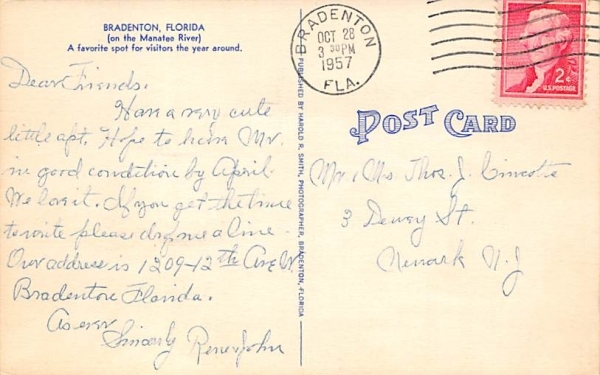 BRADENTON, FLORIDA
(on the Manatee River)
A favorite spot for visitors the year around.
Dear Friends.
Have a very cute
little apt. Hope to have Mr.
in good condition by April.
We love it. If you get the time
to write please drop me a line.
Our address is 1209-12th Ave W.
Bradenton Florida.
As ever
Sincerly
PUBLISHED BY HAROLD R. SMITH, PHOTOGRAPHER, BRADENTON, FLORIDA
BRADENTON
OCT 28
3 30 PM
1957
FLA.
2¢
U.S. POSTAGE
POST CARD
Mr & Mrs Thos. J.
3 Dewey St.
Newark N.J